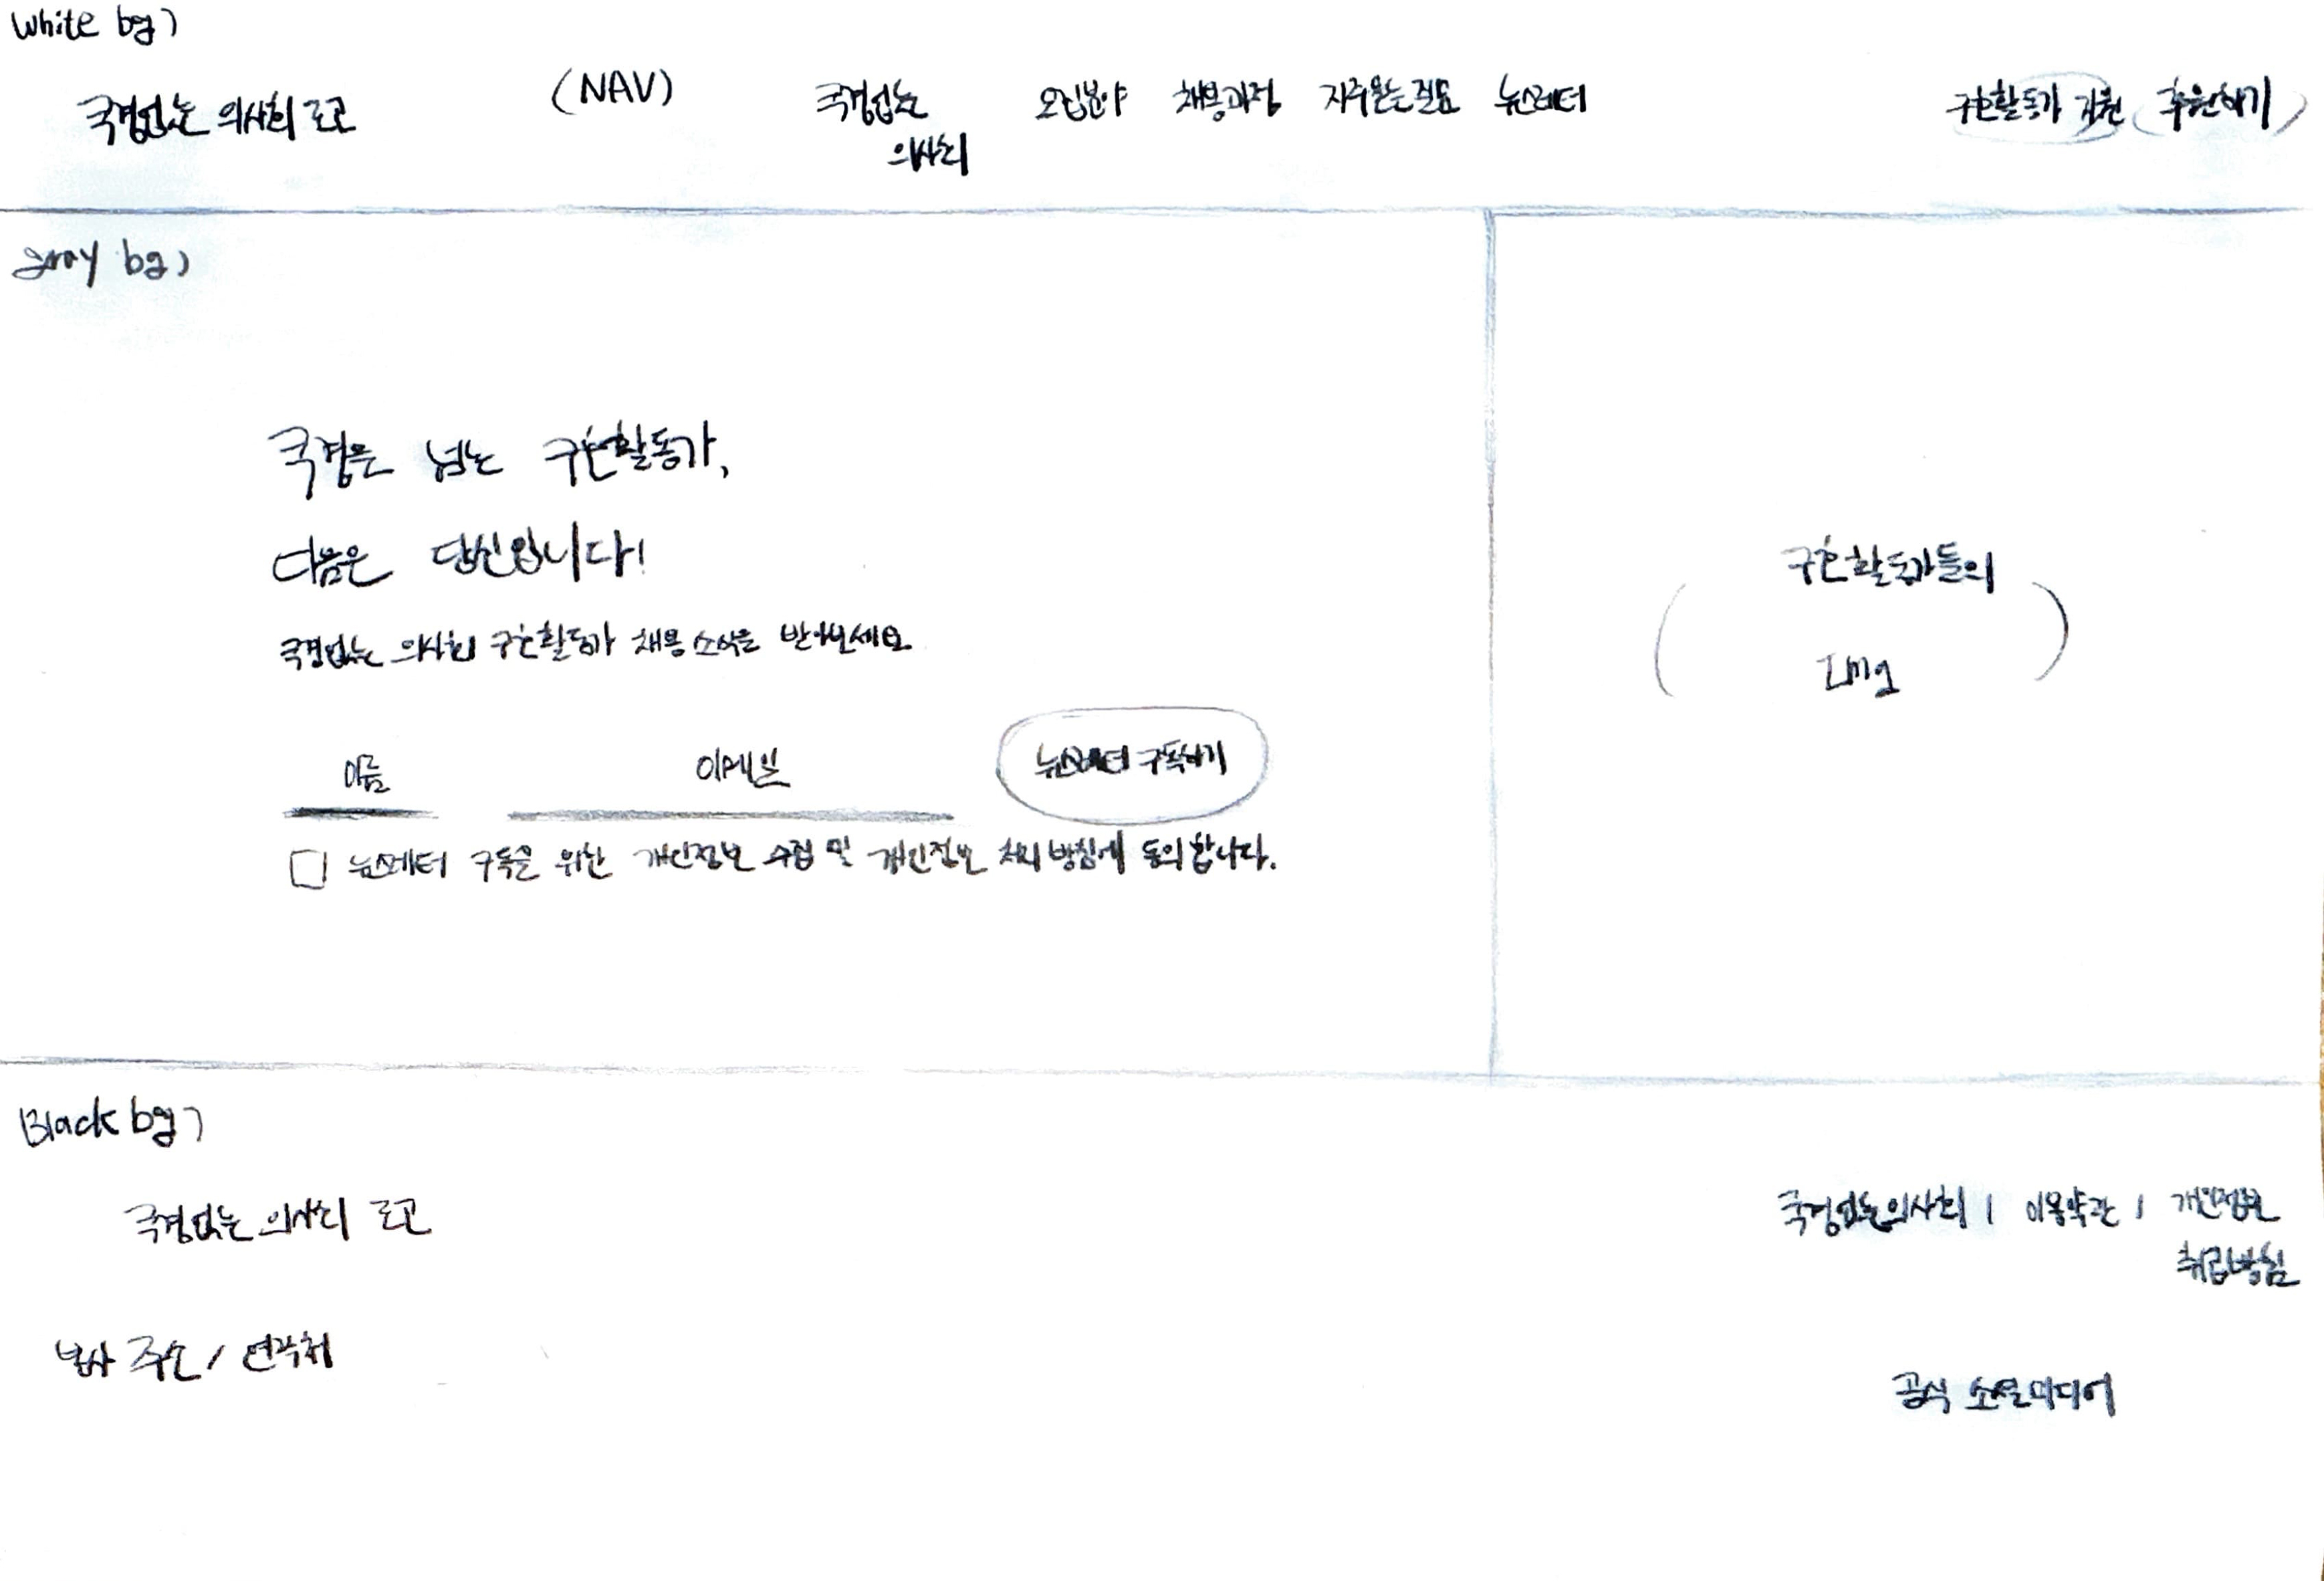 White bg)
국경없는 의사회 로고 (NAV) 국경없는 의사회 모집분야 채용과정 자주묻는질문 뉴스레터 구호활동가 지원 후원하기
gray bg)
국경을 넘는 구호활동가,
다음은 당신입니다!
국경없는 의사회 구호활동가 채용 소식을 받아보세요.
이름 이메일 뉴스레터 구독하기
뉴스레터 구독을 위한 개인정보 수집 및 개인정보 처리 방침에 동의합니다.
구호활동가들의
Img
Black bg)
국경없는 의사회 로고
본사 주소 / 연락처
국경없는의사회 | 이용약관 | 개인정보
취급방침
공식 소셜미디어